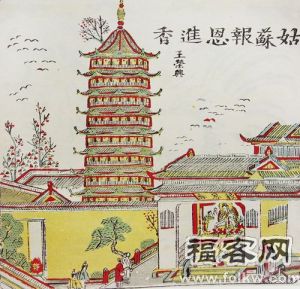 姑蘇報恩進香
王榮興
福客网
www.folkw.com